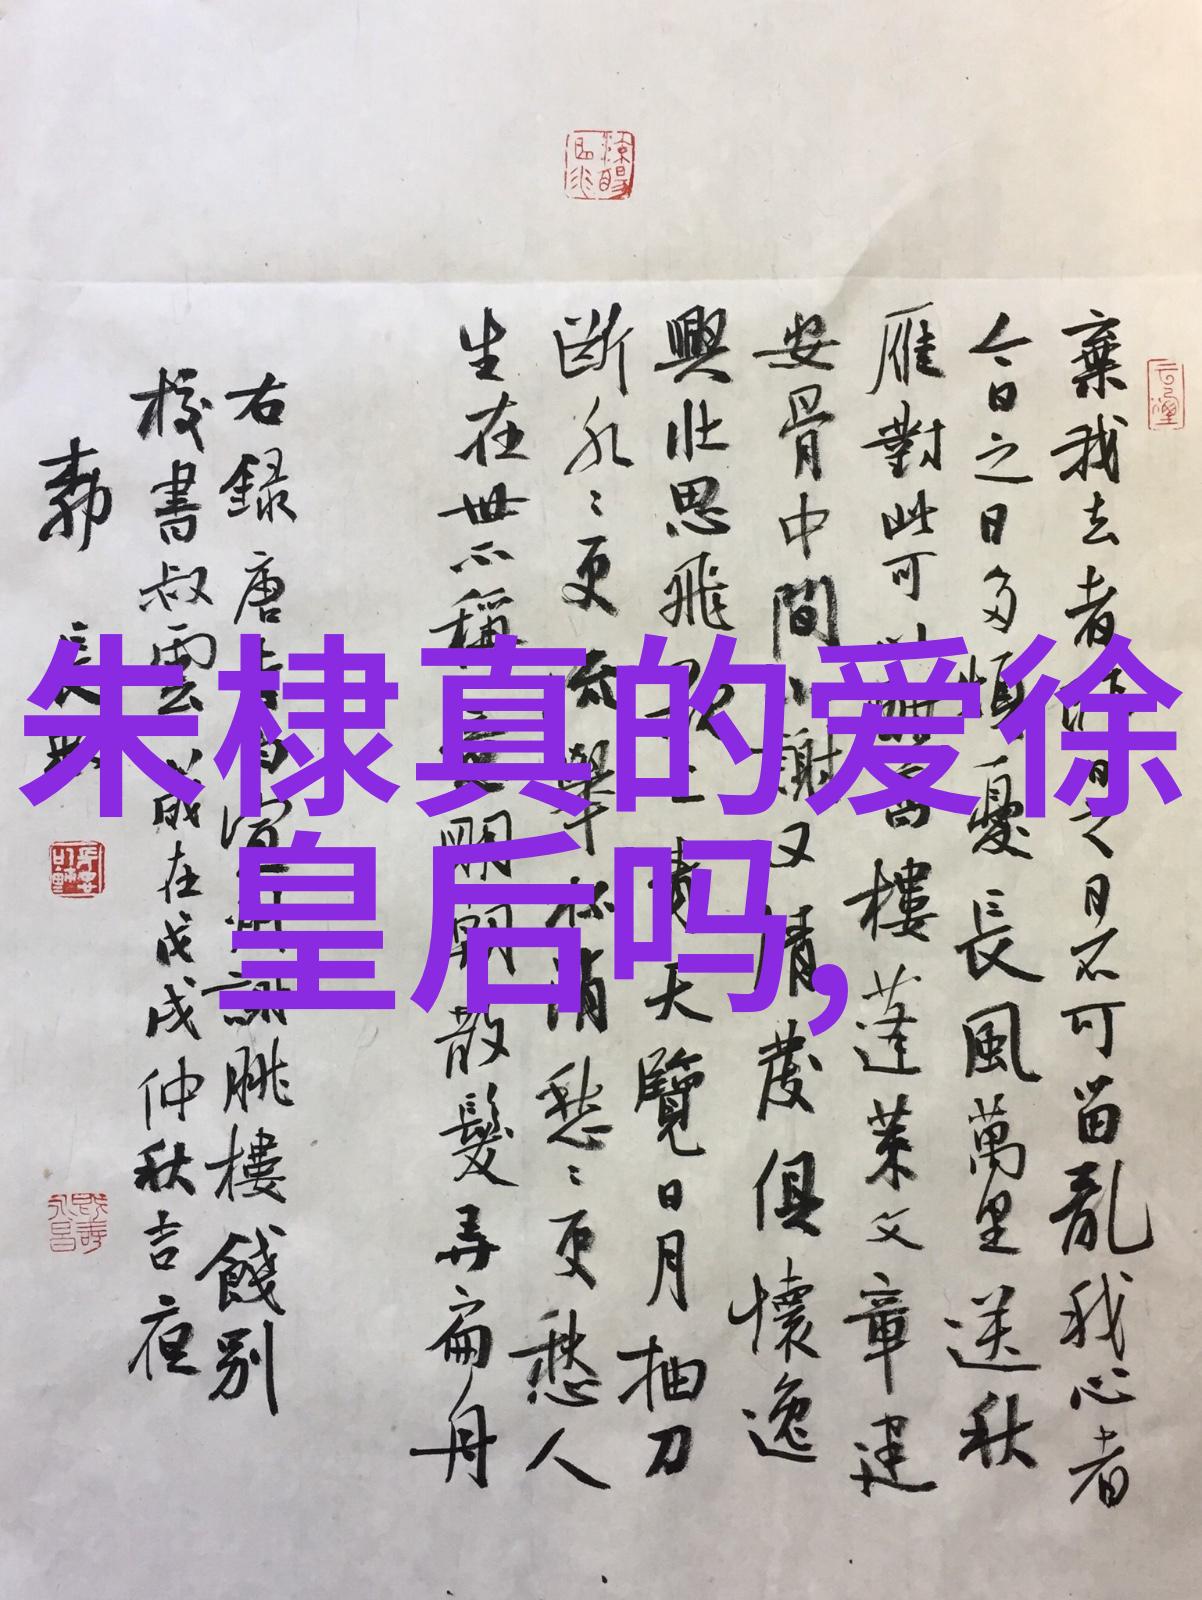 朱棣真的爱徐
皇后吗,
棄我去者昨日之日不可留亂我心者
今日之日多煩憂長風萬里送秋
雁對此可以酣高樓蓬萊文章建
安骨中間小謝又清發俱懷逸
興壯思飛欲上青天覽日月抽刀
斷水〻更流舉杯消愁〻更愁人
生在世不稱意明朝散髮弄扁舟
右録唐李白宣州謝朓樓餞別
校書叔雲歲在戊戌仲秋吉夜